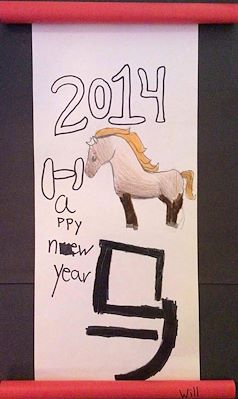 2014
Ha
PPy
new
year
马
Will